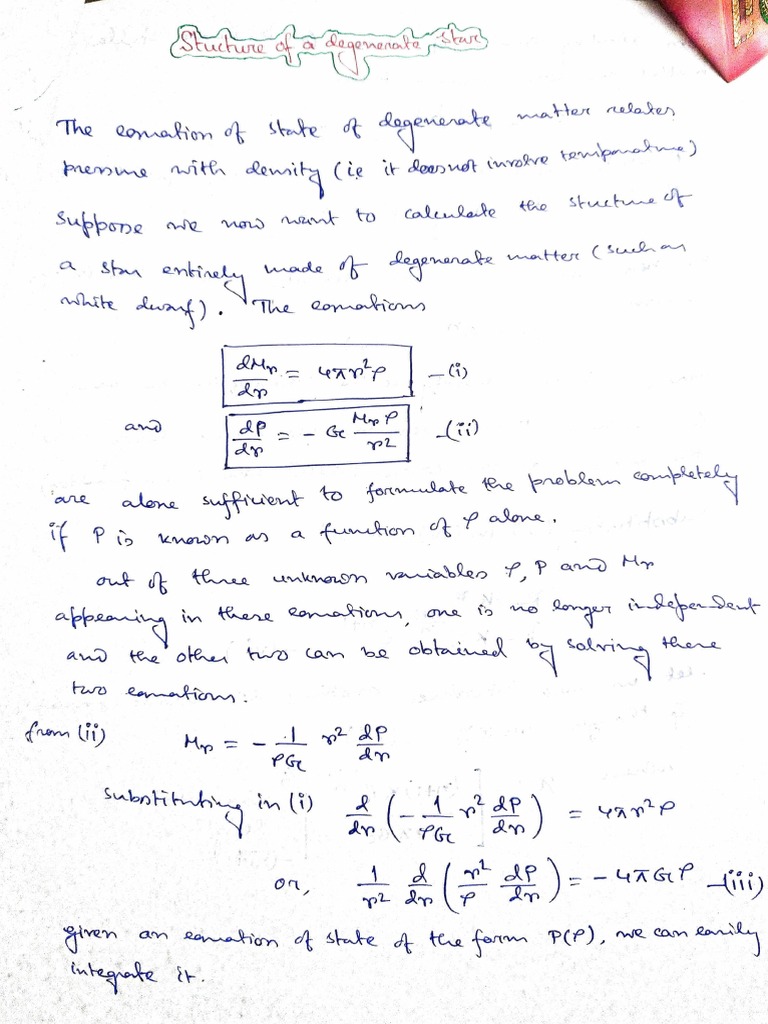 Stucture of a degenerate star
The equation of state of degenerate matter relates
pressure with density (i.e it does not involve temperature)
suppose we now want to calculate the stucture of
a star entirely made of degenerate matter (such as
white dwarf). The equations
dMr/dr = 4πr²ρ —(i)
and dP/dr = - G Mrρ/r² —(ii)
are alone sufficient to formulate the problem completely
if P is known as a function of ρ alone.
out of three unknown variables ρ, P and Mr
appearing in these equations, one is no longer independent
and the other two can be obtained by solving these
two equations.
from (ii) Mr = - 1/ρG r² dP/dr
substituting in (i) d/dr (- 1/ρG r² dP/dr) = 4πr²ρ
or, 1/r² d/dr (r²/ρ dP/dr) = - 4πGρ —(iii)
given an equation of state of the form P(ρ), we can easily
integrate it.